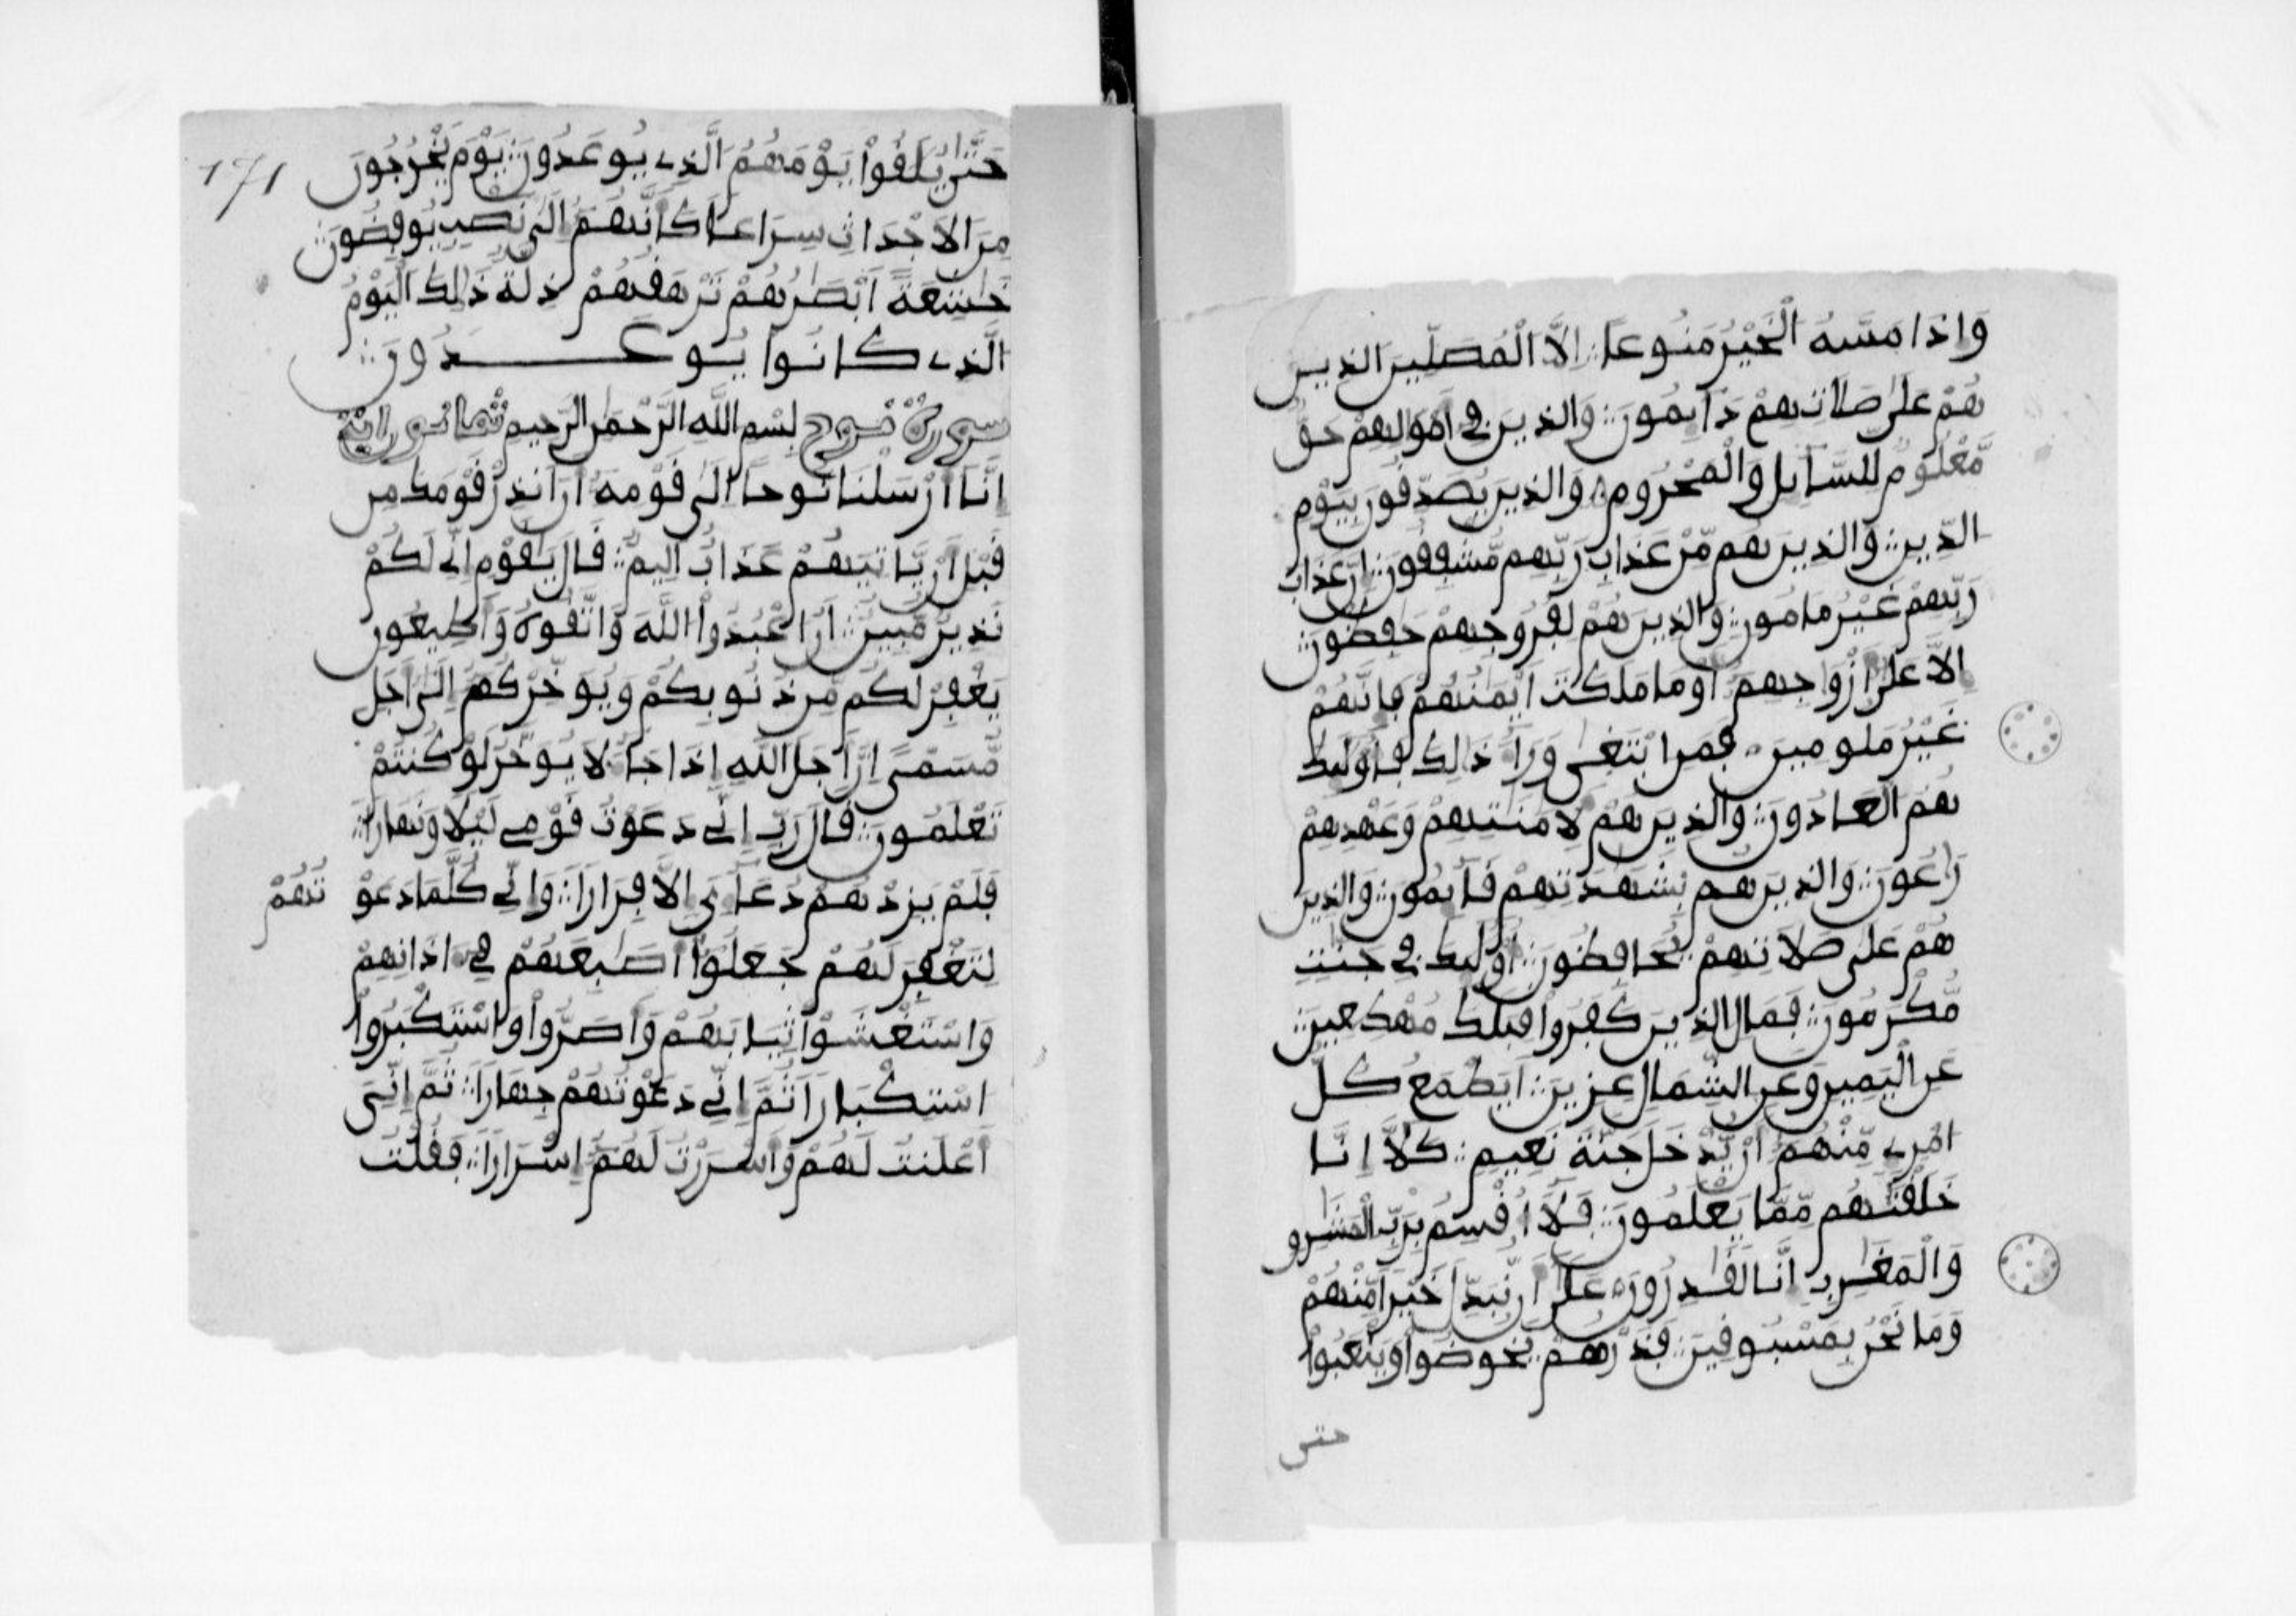 وَإِذَا مَسَّهُ الْخَيْرُ مَنُوعًا إِلَّا الْمُصَلِّينَ الذِينَ
هُمْ عَلَىٰ صَلَاتِهِمْ دَآيِمُونَ وَالذِينَ فِي أَمْوَٰلِهِمْ حَقٌّ
مَّعْلُومٌ لِّلسَّآيِلِ وَالْمَحْرُومِ وَالذِينَ يُصَدِّقُونَ بِيَوْمِ
الدِّينِ وَالذِينَ هُم مِّنْ عَذَابِ رَبِّهِم مُّشْفِقُونَ إِنَّ عَذَابَ
رَبِّهِمْ غَيْرُ مَامُونٍ وَالذِينَ هُمْ لِفُرُوجِهِمْ حَٰفِظُونَ
إِلَّا عَلَىٰ أَزْوَٰجِهِمُ أَوْ مَا مَلَكَتَ أَيْمَٰنُهُمْ فَإِنَّهُمْ
غَيْرُ مَلُومِينَ فَمَنِ ابْتَغَىٰ وَرَآءَ ذَٰلِكَ فَأُوْلَٰئِكَ
هُمُ الْعَادُونَ وَالذِينَ هُمْ لِأَمَٰنَٰتِهِمْ وَعَهْدِهِمْ
رَٰعُونَ وَالذِينَ هُم بِشَهَٰدَتِهِمْ قَآيِمُونَ وَالذِينَ
هُمْ عَلَىٰ صَلَاتِهِمْ يُحَافِظُونَ أُوْلَٰئِكَ فِي جَنَّٰتٍ
مُّكْرَمُونَ فَمَالِ الذِينَ كَفَرُوا قِبَلَكَ مُهْطِعِينَ
عَنِ الْيَمِينِ وَعَنِ الشِّمَالِ عِزِينَ أَيَطْمَعُ كُلُّ
امْرِئٍ مِّنْهُمُ أَنْ يُّدْخَلَ جَنَّةَ نَعِيمٍ كَلَّا إِنَّا
خَلَقْنَٰهُم مِّمَّا يَعْلَمُونَ فَلَا أُقْسِمُ بِرَبِّ الْمَشَٰرِقِ
وَالْمَغَٰرِبِ إِنَّا لَقَٰدِرُونَ عَلَىٰ أَن نُّبَدِّلَ خَيْرًا مِّنْهُمْ
وَمَا نَحْنُ بِمَسْبُوقِينَ فَذَرْهُمْ يَخُوضُوا وَيَلْعَبُوا
حتى
171
حَتَّىٰ يُلَٰقُوا يَوْمَهُمُ الَّذِي يُوعَدُونَ يَوْمَ يَخْرُجُونَ
مِنَ الْأَجْدَاثِ سِرَاعًا كَأَنَّهُمُ إِلَىٰ نَصْبٍ يُوفِضُونَ
خَٰشِعَةً أَبْصَٰرُهُمْ تَرْهَقُهُمْ ذِلَّةٌ ذَٰلِكَ الْيَوْمُ
الَّذِي كَانُوا يُوعَدُونَ
سورة نوح بِسْمِ اللَّهِ الرَّحْمَٰنِ الرَّحِيمِ ثمانون اية
إِنَّا أَرْسَلْنَا نُوحًا إِلَىٰ قَوْمِهِ أَنَ أَنذِرْ قَوْمَكَ مِن
قَبْلِ أَنْ يَّاتِيَهُمْ عَذَابٌ أَلِيمٌ قَالَ يَٰقَوْمِ إِنِّي لَكُمْ
نَذِيرٌ مُّبِينٌ أَنُ اعْبُدُوا اللَّهَ وَاتَّقُوهُ وَأَطِيعُونِ
يَغْفِرْ لَكُم مِّن ذُنُوبِكُمْ وَيُوَخِّرْكُمُ إِلَىٰ أَجَلٍ
مُّسَمًّى إِنَّ أَجَلَ اللَّهِ إِذَا جَآءَ لَا يُوَخَّرُ لَوْ كُنتُمْ
تَعْلَمُونَ قَالَ رَبِّ إِنِّي دَعَوْتُ قَوْمِي لَيْلًا وَنَهَارًا
فَلَمْ يَزِدْهُمْ دُعَآءِيَ إِلَّا فِرَارًا وَإِنِّي كُلَّمَا دَعَوْ تُهُمْ
لِتَغْفِرَ لَهُمْ جَعَلُوا أَصَٰبِعَهُمْ فِي ءَاذَانِهِمْ
وَاسْتَغْشَوْا ثِيَابَهُمْ وَأَصَرُّوا وَاسْتَكْبَرُوا
اسْتِكْبَارًا ثُمَّ إِنِّي دَعَوْتُهُمْ جِهَارًا ثُمَّ إِنِّيَ
أَعْلَنتُ لَهُمْ وَأَسْرَرْتُ لَهُمُ إِسْرَارًا فَقُلْتُ